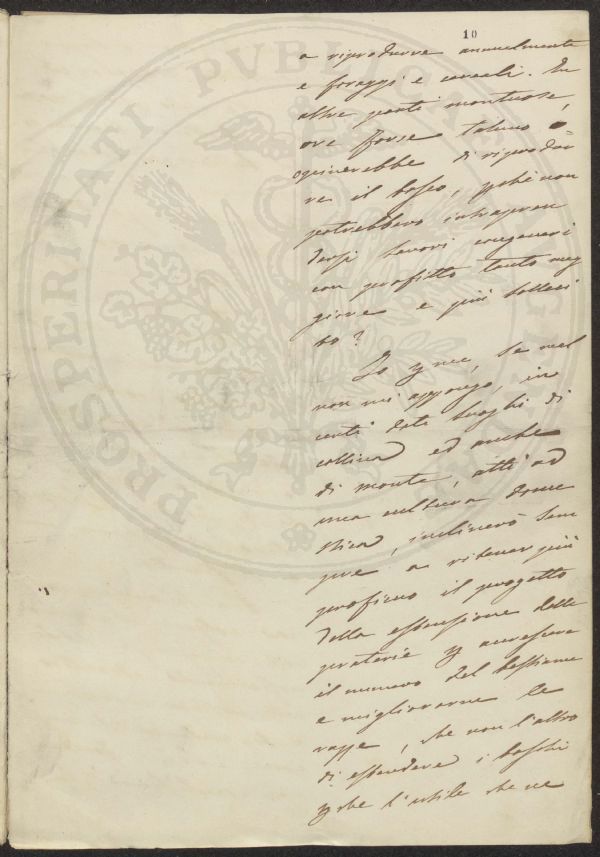 10
a riprodurre annualmente
e foraggi e cereali. In
altre parti montuose,
ove forse taluno o-
opinerebbe di riprodur
re il bosco, poiché non
potrebbero intrapren
dersi lavori congeneri
con profitto tanto mag
giore e più solleci
to?
Io p me, se mal
non mi appongo, in
certi dati luoghi di
collina ed anche
di monte, atti ad
una cultura dome
stica, inclinerò sem
pre a ritener più
proficuo il progetto
della estensione delle
praterie p accrescere
il numero del bestiame
e migliorarne le
razze, che non l'altro
di estendere i boschi
p che l'utile che ne
PROSPERITATI PUBLICAE AUGENDAE